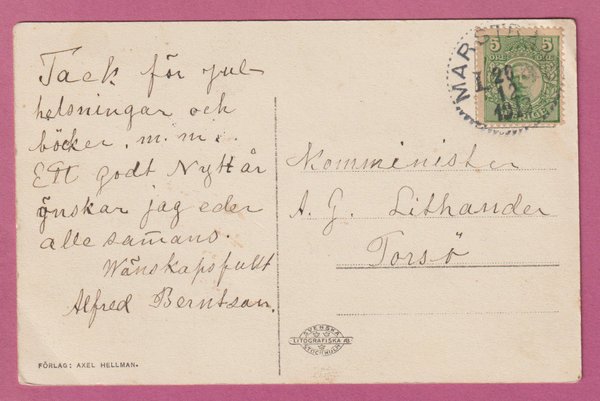 Tack för jul-
helsningar och
böcker. m. m.
Ett godt Nytt år
önskar jag eder
alle samans.
Wänskapsfullt
Alfred Berntson.
FÖRLAG: AXEL HELLMAN.
5 5
MARSTR
20
12
Komminister
A. G. Lithander
Torsö
SVENSKA
LITOGRAFISKA AB
STOCKHOLM